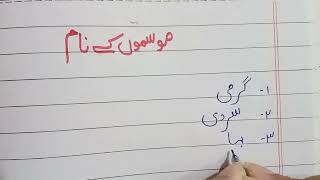 موسموں کے نام
۱- گرمی
۲- سردی
۳- بہا